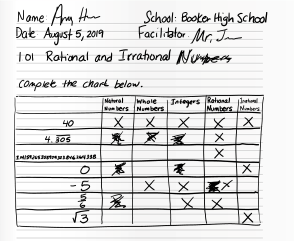 Name: Amy H
School: Booker High School
Date August 5, 2019
Facilitator: Mr. J
101 Rational and Irrational Numbers
Complete the chart below.
Natural Numbers Whole Numbers Integers Rational Numbers Irrational Numbers
40 X X X X X
4.305 X
X
0 X
-5 X X X
5/6 X X
√3 X